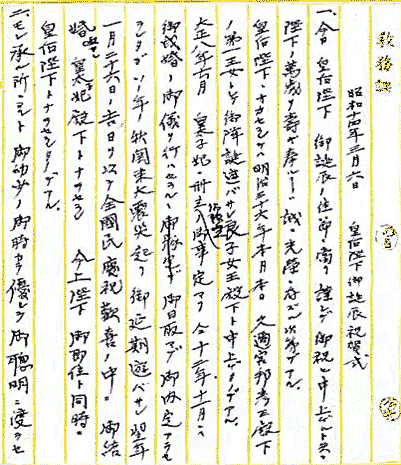 教務課
昭和十四年三月六日　皇后陛下御誕辰祝賀式
一、今日 皇后陛下 御誕辰ノ佳節ニ當リ謹ンデ御祝ヒ申上ゲルト共ニ
陛下ノ萬歳ヲ壽ギ奉ルコトハ誠ニ光榮ニ存ズル次第デアル
皇后陛下ニオカセラレテハ明治三十六年本月本日 久邇宮邦彦王殿下
ノ第一王女トシテ御降誕遊バサレ良子女王殿下ト申上ゲタノデアル
大正八年六月 皇太子妃ニ冊立ノ御事定マリ 仝十三年十一月ニ
御成婚ノ御儀ヲ行ハセラルル御豫定デ御日取マデ御内定アラセ
ラレタガソノ年ノ秋関東大震災起リ御延期遊バサレ翌年
一月二十六日ノ吉日ヲ以テ全國民慶祝歓喜ノ中ニ 御結
婚 皇太子妃殿下トナラセラレ 今上陛下 御即位ト同時ニ
皇后陛下トナラセラレタノデアル
二、モレ承ル所ニヨルト御幼少ノ御時カラ優レテ御聰明ニ渡ラセ